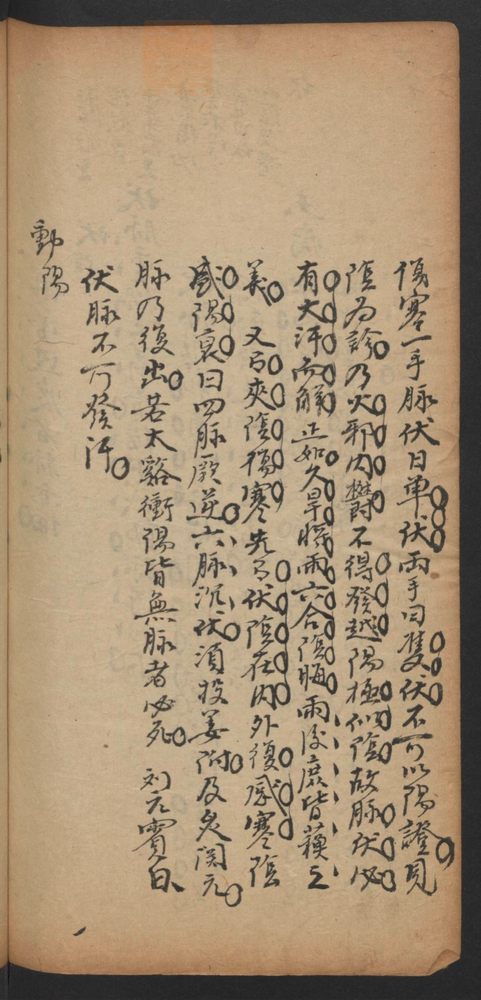 傷寒一手脉伏曰单伏兩手曰隻伏不可以陽證見
陰为診乃火邪内欝不得發越陽極似陰故脉伏必
有大汗而觧正如久旱將雨六合陰晦雨後庶皆蘓之
義 又有夾陰傷寒先有伏陰在内外復感寒陰
盛陽衰曰四脉厥逆六脉沉伏須投姜附及灸関元
脉乃復出若太谿衝陽皆無脉者必死 刘元賓曰
伏脉不可發汗
動陽